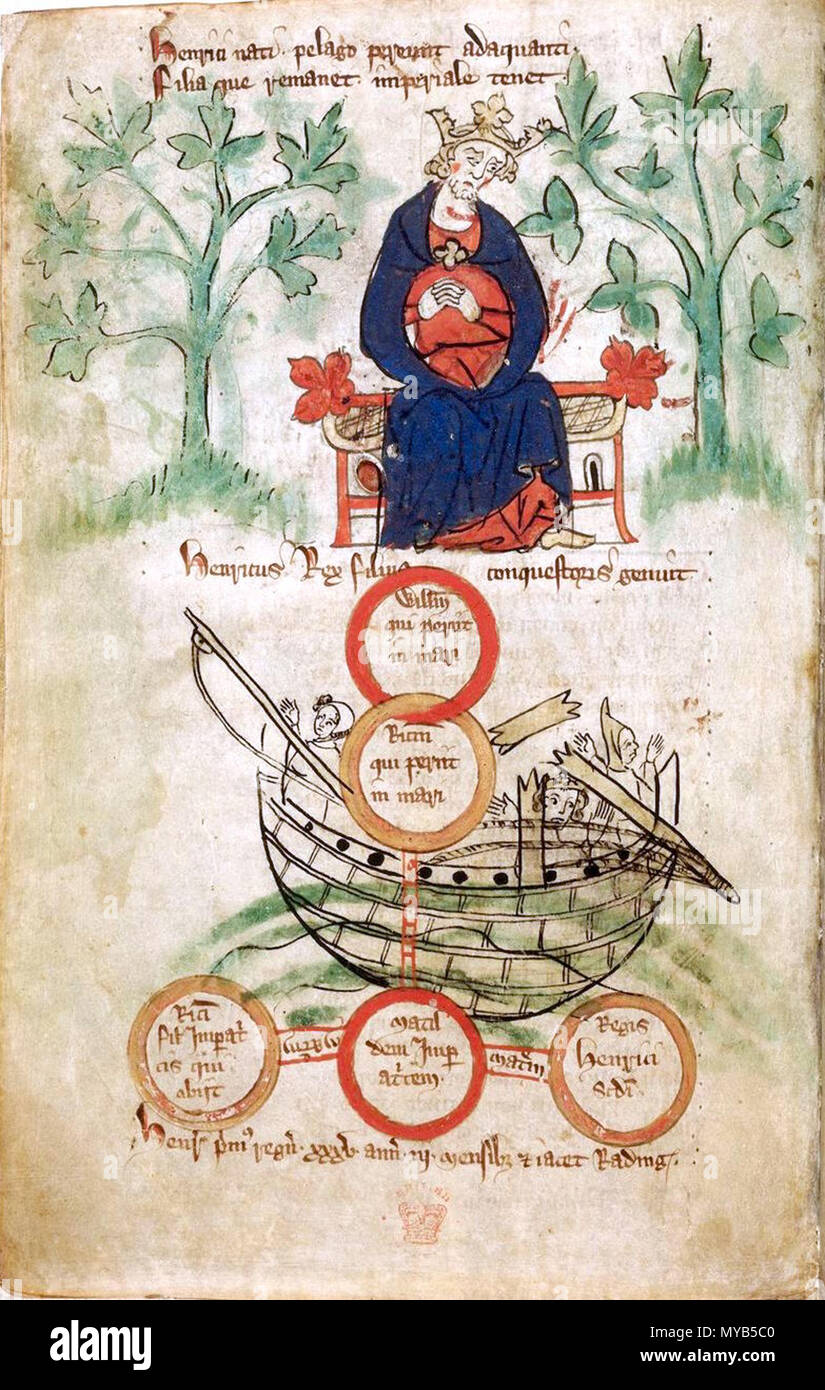 Henrici nati · pelago pereunt adaquanti ·
Filia que remanet · imperiale tenet ·
Henricus Rex filius conquestoris genuit ·
Willm
qui periit
in mari
Ricm
qui periit
in mari
Rici
fil Impat
cis qui
obiit
matrem
matil
dem Imp
atcem
matrem
Regis
Henrici
Scdi
Henr pm regn · xxxv · ann · iii · mensibz & iacet Rading
alamy
alamy
Image ID: MYB5C0
www.alamy.com